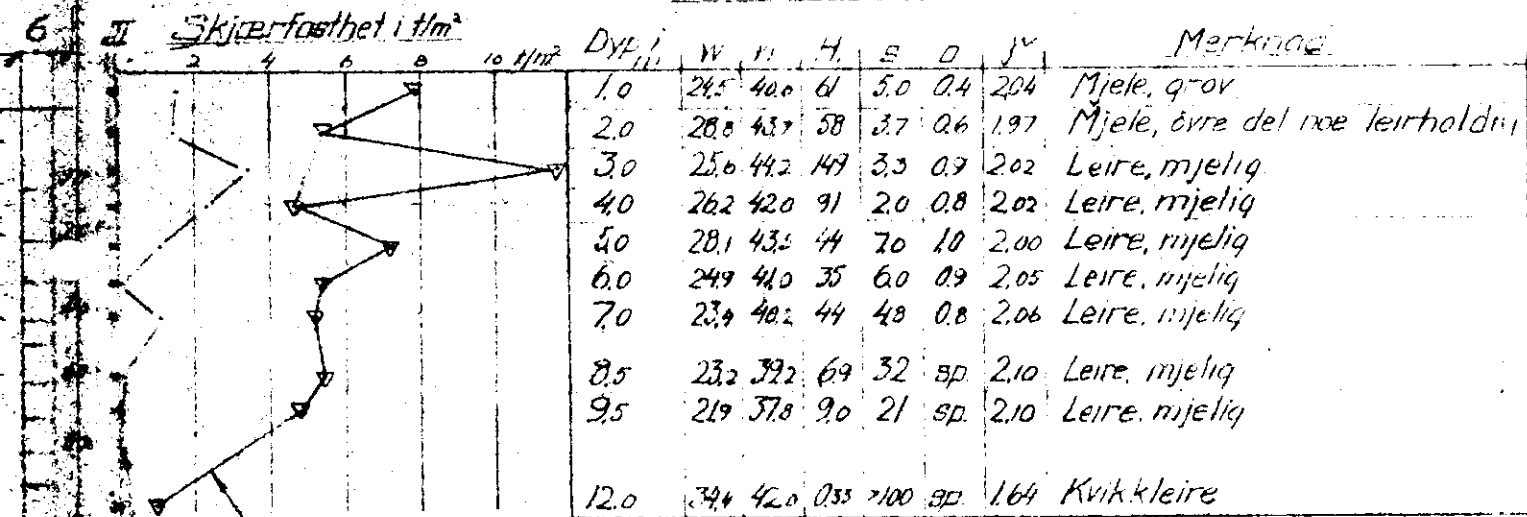 6 II Skjærfasthet i t/m²
2 4 6 8 10 t/m² Dyp i m W n H₁ S O γ Merknad
1.0 24.5 40.0 61 5.0 0.4 2.04 Mjele, grov
2.0 28.8 43.7 58 3.7 0.6 1.97 Mjele, övre del noe leirholdig
3.0 25.6 44.2 149 3.3 0.9 2.02 Leire, mjelig
4.0 26.2 42.0 91 2.0 0.8 2.02 Leire, mjelig
5.0 28.1 43.5 44 7.0 1.0 2.00 Leire, mjelig
6.0 24.9 41.0 35 6.0 0.9 2.05 Leire, mjelig
7.0 23.9 40.2 44 4.8 0.8 2.06 Leire, mjelig
8.5 23.2 39.2 6.9 32 sp. 2.10 Leire, mjelig
9.5 21.9 37.8 9.0 21 sp. 2.10 Leire, mjelig
12.0 34.4 42.0 0.33 >100 sp. 1.64 Kvikkleire